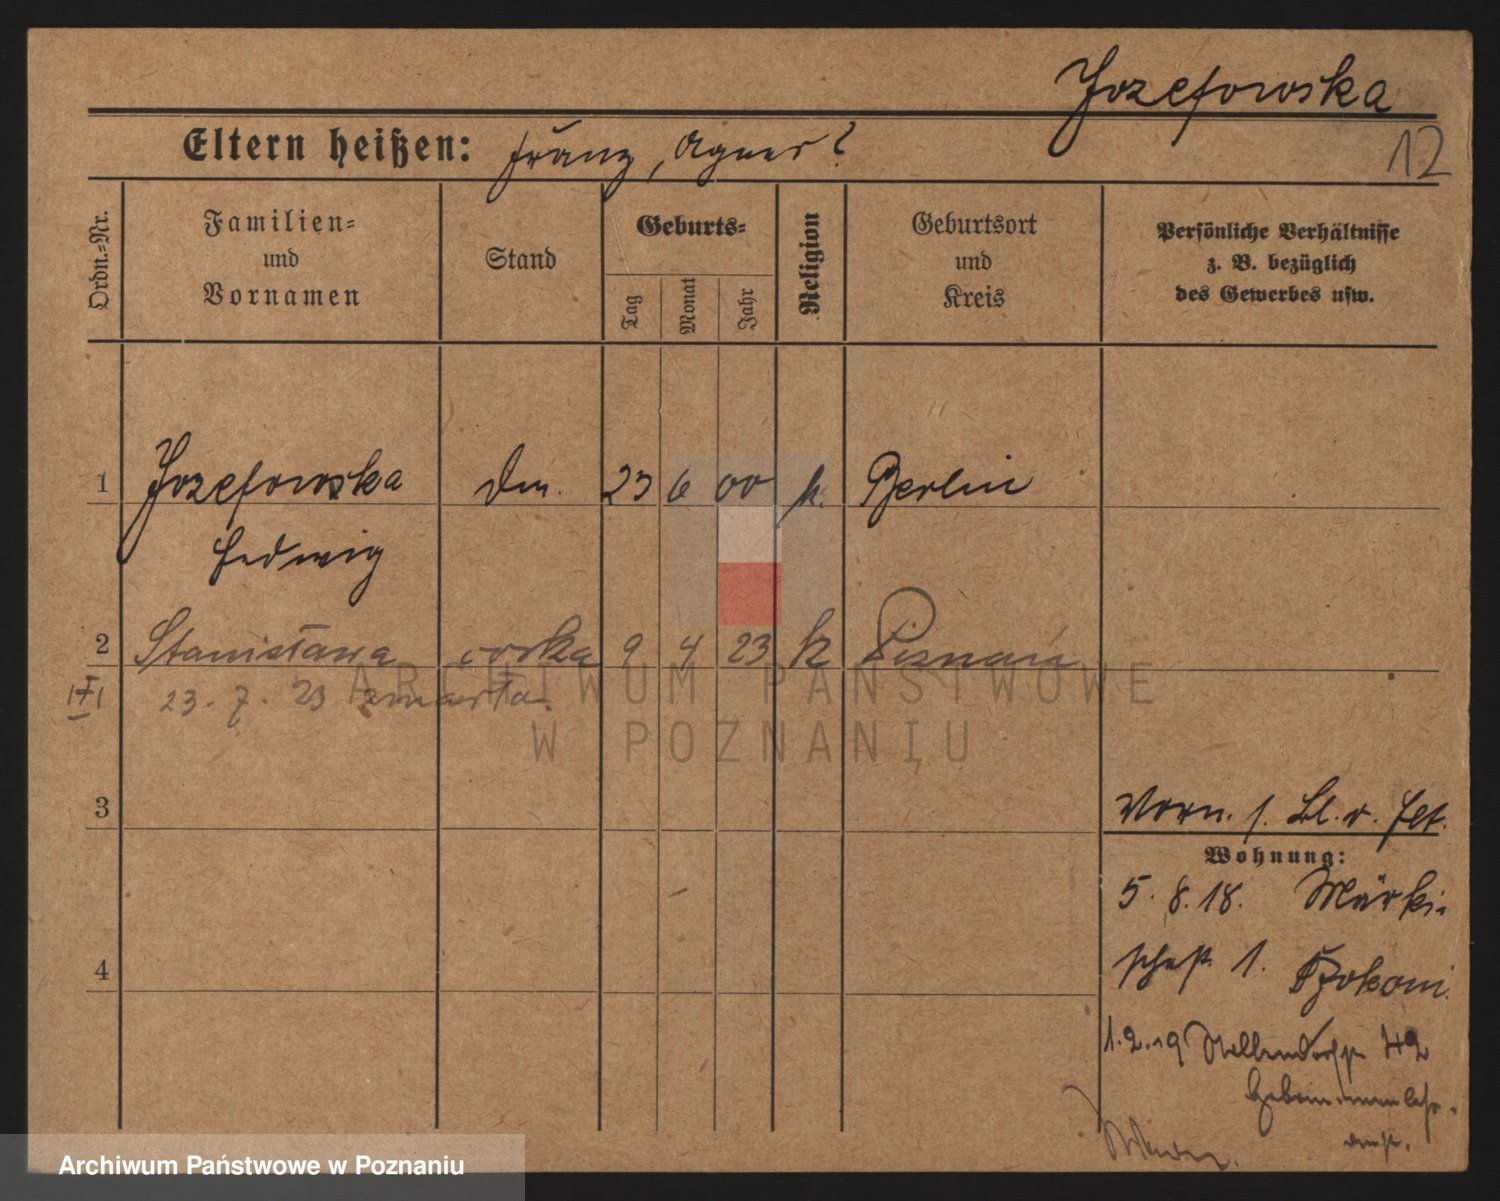 Jozefowska
12
Eltern heißen: Franz, Agnes ?
Ordn.-Nr.
Familien- und Vornamen
Stand
Geburts-
Tag
Monat
Jahr
Religion
Geburtsort und Kreis
Persönliche Verhältnisse
z. B. bezüglich
des Gewerbes usw.
1 Jozefowska Dm. 23 6 00 k. Berlin
Hedwig
2 Stanisława córka 9 4 23 k Poznań
23. 7. 23 zmarła.
3
Vorn. s. Bl. v. Elt.
Wohnung:
5. 8. 18. Märki-
schestr. 1.
4
1. 2. 19 Nollendorfstr 42
ARCHIWUM PAŃSTWOWE
W POZNANIU
Archiwum Państwowe w Poznaniu